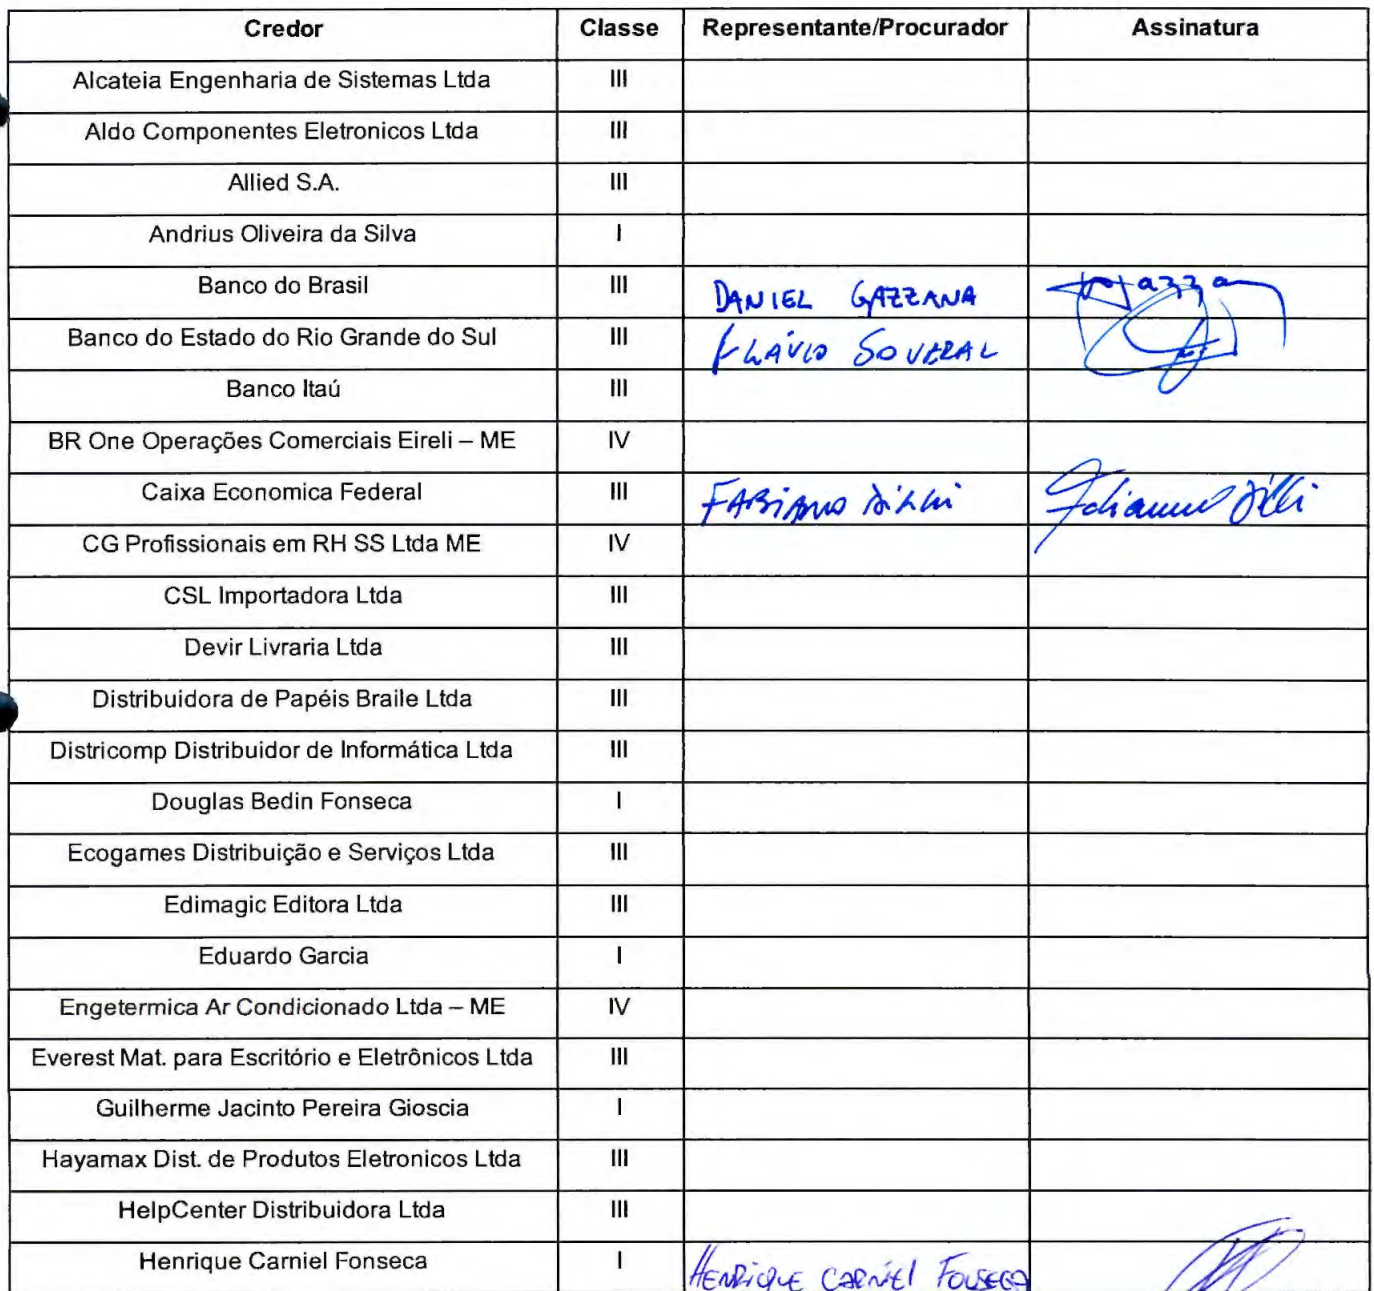 Credor Classe Representante/Procurador Assinatura
Alcateia Engenharia de Sistemas Ltda III
Aldo Componentes Eletronicos Ltda III
Allied S.A. III
Andrius Oliveira da Silva I
Banco do Brasil III DANIEL GAZZANA
Banco do Estado do Rio Grande do Sul III FLÁVIO SOVERAL
Banco Itaú III
BR One Operações Comerciais Eireli – ME IV
Caixa Economica Federal III FABIANO DILLI
CG Profissionais em RH SS Ltda ME IV
CSL Importadora Ltda III
Devir Livraria Ltda III
Distribuidora de Papéis Braile Ltda III
Districomp Distribuidor de Informática Ltda III
Douglas Bedin Fonseca I
Ecogames Distribuição e Serviços Ltda III
Edimagic Editora Ltda III
Eduardo Garcia I
Engetermica Ar Condicionado Ltda – ME IV
Everest Mat. para Escritório e Eletrônicos Ltda III
Guilherme Jacinto Pereira Gioscia I
Hayamax Dist. de Produtos Eletronicos Ltda III
HelpCenter Distribuidora Ltda III
Henrique Carniel Fonseca I HENRIQUE CARNIEL FONSECA